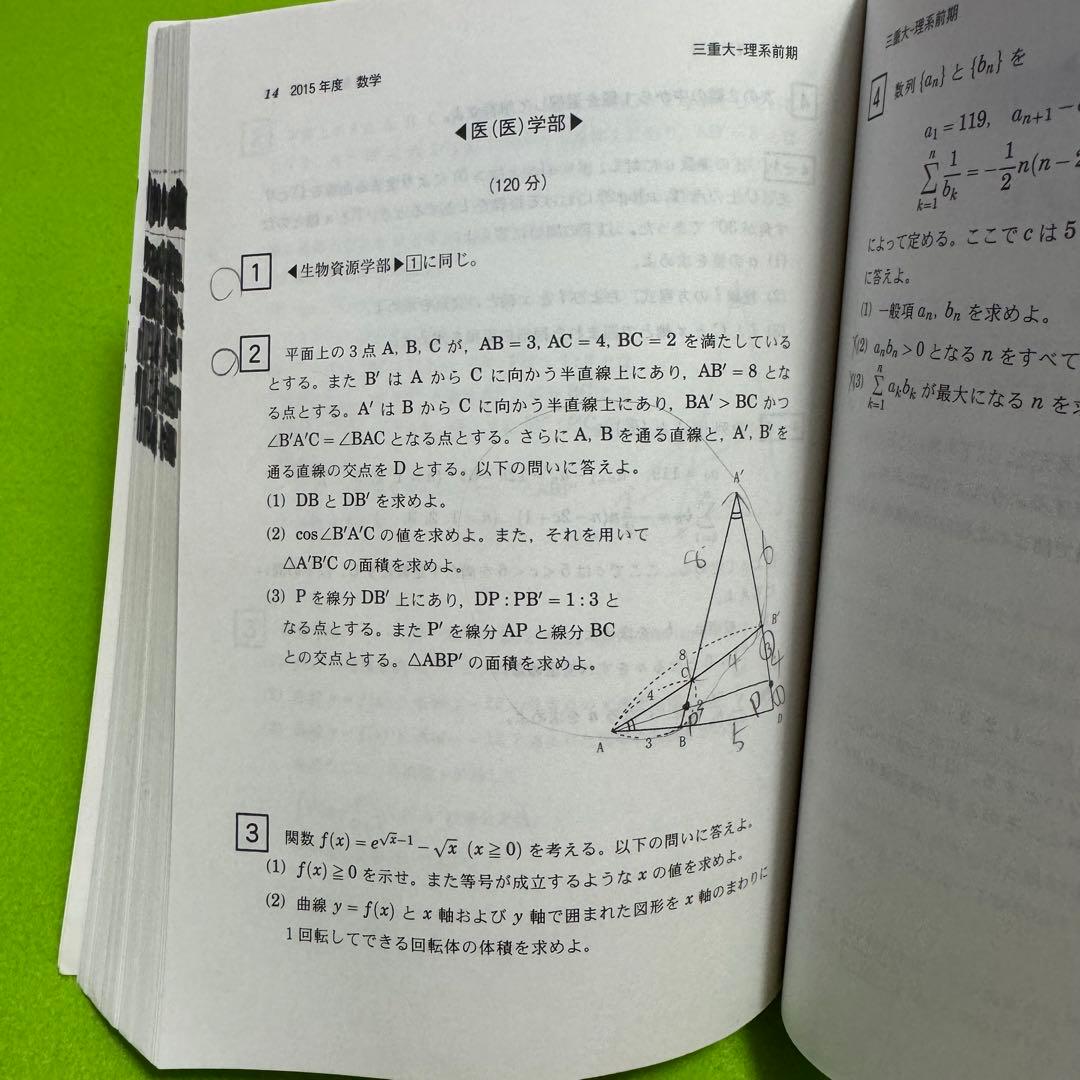 三重大-理系前期
14 2015年度 数学
◀医(医)学部▶
(120分)
1 ◀生物資源学部▶1に同じ。
2 平面上の3点 A, B, C が, AB=3, AC=4, BC=2 を満たしている
とする。また B′ は A から C に向かう半直線上にあり, AB′=8 とな
る点とする。A′ は B から C に向かう半直線上にあり, BA′>BC かつ
∠B′A′C=∠BAC となる点とする。さらに A, B を通る直線と, A′, B′ を
通る直線の交点を D とする。以下の問いに答えよ。
(1) DB と DB′ を求めよ。
(2) cos∠B′A′C の値を求めよ。また, それを用いて
△A′B′C の面積を求めよ。
(3) P を線分 DB′ 上にあり, DP:PB′=1:3 と
なる点とする。また P′ を線分 AP と線分 BC
との交点とする。△ABP′ の面積を求めよ。
A′
8 6
B′
8 4 3 4
C
4 2
P′ P 1
D
A 3 B 5
3 関数 f(x)=e^{√x−1}−√x (x≧0) を考える。以下の問いに答えよ。
(1) f(x)≧0 を示せ。また等号が成立するような x の値を求めよ。
(2) 曲線 y=f(x) と x 軸および y 軸で囲まれた図形を x 軸のまわりに
1回転してできる回転体の体積を求めよ。
三重大-理系前期
4 数列 {aₙ} と {bₙ} を
a₁=119, aₙ₊₁−
∑_{k=1}^{n} 1/bₖ = −1/2 n(n−2
によって定める。ここで c は 5
に答えよ。
(1) 一般項 aₙ, bₙ を求めよ。
(2) aₙbₙ>0 となる n をすべて
(3) ∑_{k=1}^{n} aₖbₖ が最大になる n を